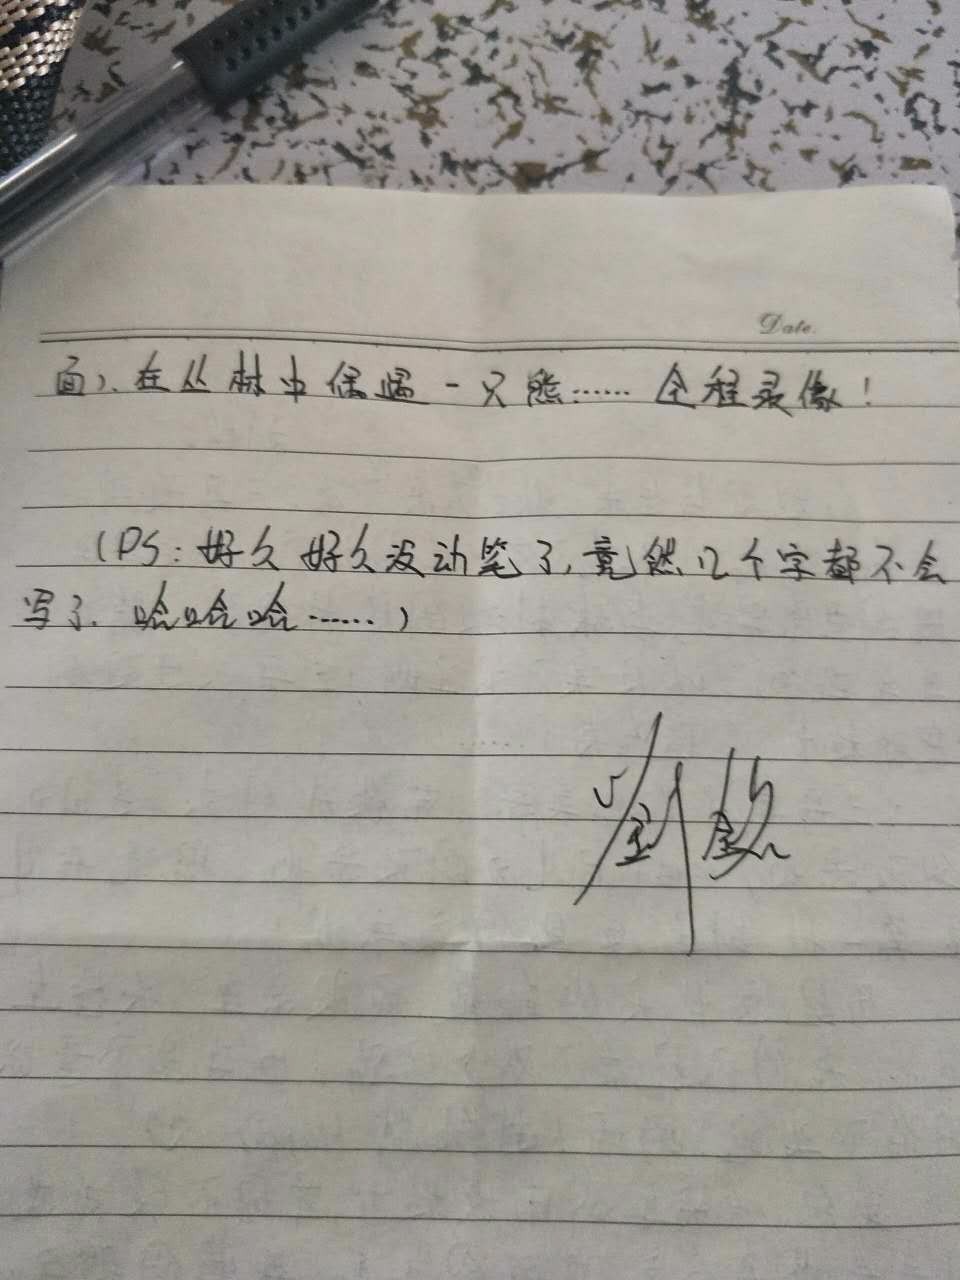 Date.
面)、在丛林中偶遇一只熊……全程录像!
(PS:好久好久没动笔了,竟然几个字都不会
写了、哈哈哈……)